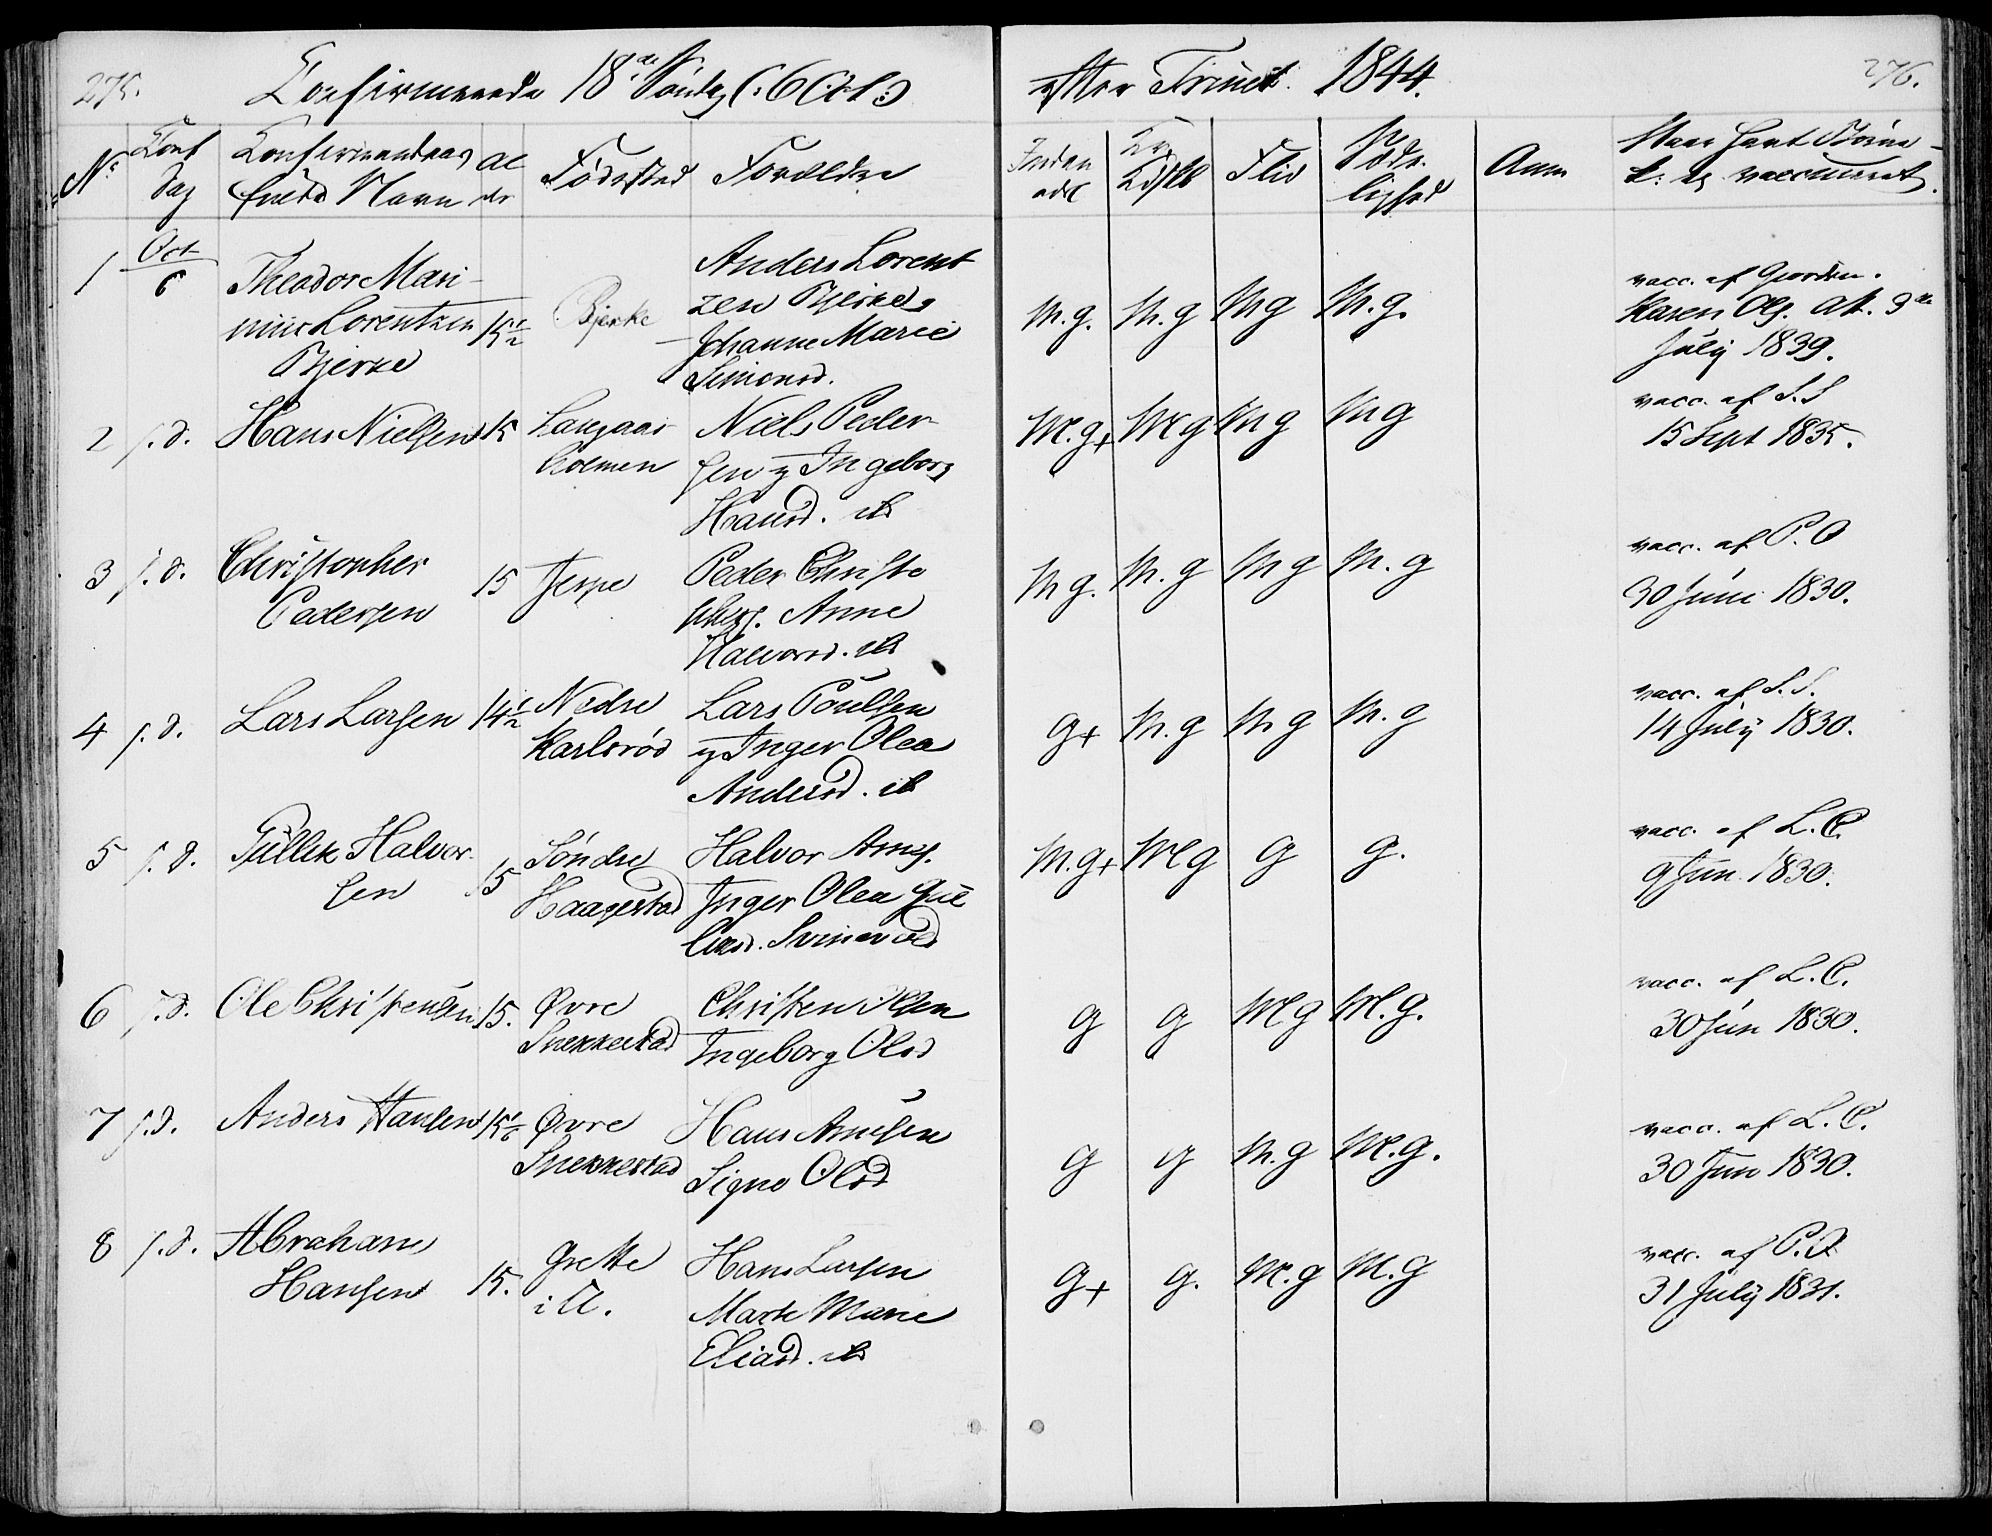 275.
Confirmerede 18de Søndag (: 6 Oct :)
efter Trinit. 1844.
276.
No
Conf Dag
Confirmandens fulde Navn
Al der
Fødested
Forældre
Inden adl
Flid
Sæde lighed
Anm
Naar havt Børne
k: el vaccineret.
1 Oct 6 Theodor Mari-
nius Lorentzen
Bjerke
15 1/2
Bjerke
Anders Lorent
zen Bjerke,
Johanne Marie
Simonsd.
M.g. M.g Mg M.g.
vacc. af Gjordm.
Karen Ols. At. 3de
July 1839.
2 s.d. Hans Nielsen 15
Langaas
holmen
Niels Peder
sen og Ingeborg
Hansd. ib
M.g+ Mg Mg Mg
vacc. af S.S
15 Sept 1835.
3 s.d. Christopher
Pedersen
15 Jerpe
Peder Christo
phers. Anne
Halvorsd. ib
Mg. M.g Mg M.g
vacc. af P.O
30 Juni 1830.
4 s.d. Lars Larsen 14 1/2
Nedre
Karlsrød
Lars Poulsen
og Inger Olea
Andersd. ib
g+ M.g Mg M.g
vacc. af S.S.
14 July 1830.
5 s.d. Gullek Halvor
sen
15
Søndre
Haagestad
Halvor Arnes.
Inger Olea Gul
liksd. Svinevold
M.g+ Mg g g.
vacc. af L.C.
9 Jun 1830.
6 s.d. Ole Christensen 15.
Øvre
Snekkestad
Christen Olsen
Ingeborg Olsd
g g Mg M.g.
vacc. af L.C.
30 Jun 1830.
7 s.d. Anders Hansen 15 1/6
Øvre
Snekkestad
Hans Arnesen
Signe Olsd
g g M.g M.g.
vacc. af L.C.
30 Jun 1830.
8 s.d. Abraham
Hansen
15.
Grette
i U.
Hans Larsen
Marte Marie
Eliasd. ib
g+ g. M.g M.g
vacc. af P.O.
31 July 1831.